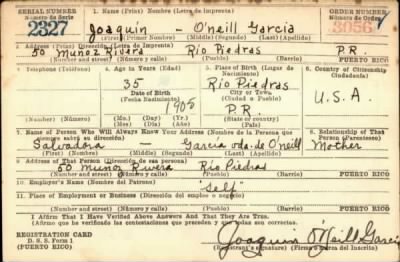 SERIAL NUMBER 1. Name (Print) Nombre (Letra de Imprenta) ORDER NUMBER
Número de Serie Número de Orden
2327 Joaquín - O'neill García 3056
(First) Primer Nombre) (Middle) (Segundo) (Last) (Apellido)
2. Address (Print) Dirección (Letra de Imprenta)
50 Munoz Rivera Río Piedras P.R.
(Number) (Número) (Street) (Calle) (Town) (Pueblo) PUERTO RICO
3. Telephone (Teléfono) 4. Age in Years (Edad) 5. Place of Birth (Lugar de Nacimiento) 6. Country of Citizenship Ciudadanía
35 Río Piedras
Date of Birth (Fecha Nacimiento) City or Town (Ciudad o Pueblo)
1905 P.R. U.S.A.
(Mo.) (Day) (Yr.) State or county
(Mes) (Día) (Año) (País)
7. Name of Person Who Will Always Know Your Address (Nombre de la Persona que siempre sabrá su dirección) 8. Relationship of That Person (Parentesco)
Salvadora - García vda. de O'neill Mother
(First) (Nombre) (Middle) (Segundo) (Last) (Apellido)
9. Address of That Person (Dirección de esa persona)
50 Munoz Rivera Río Piedras
(Number) (Número) (Street) (Calle) (Town) (Pueblo) PUERTO RICO
10. Employer's Name (Nombre del Patrono)
"Self"
11. Place of Employment or Business (Dirección del empleo o negocio)
(Number) (Número) (Street) (Calle) (Town) (Pueblo) PUERTO RICO
I Affirm That I Have Verified Above Answers And That They Are True.
(Afirmo que he verificado las contestaciones que preceden y que todas son correctas.
REGISTRATION CARD
D. S. S. Form 1
(PUERTO RICO)
Joaquin O'Neill Garcia
Registrant's signature) (Firma o marca del Inscrito)